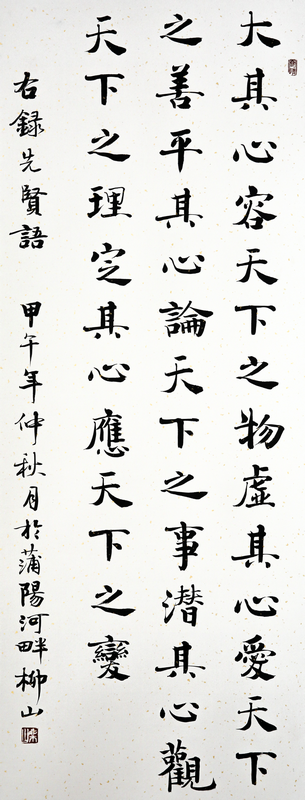 大其心容天下之物虛其心愛天下
之善平其心論天下之事潛其心觀
天下之理定其心應天下之變
右録先賢語 甲午年仲秋月於蒲陽河畔柳山